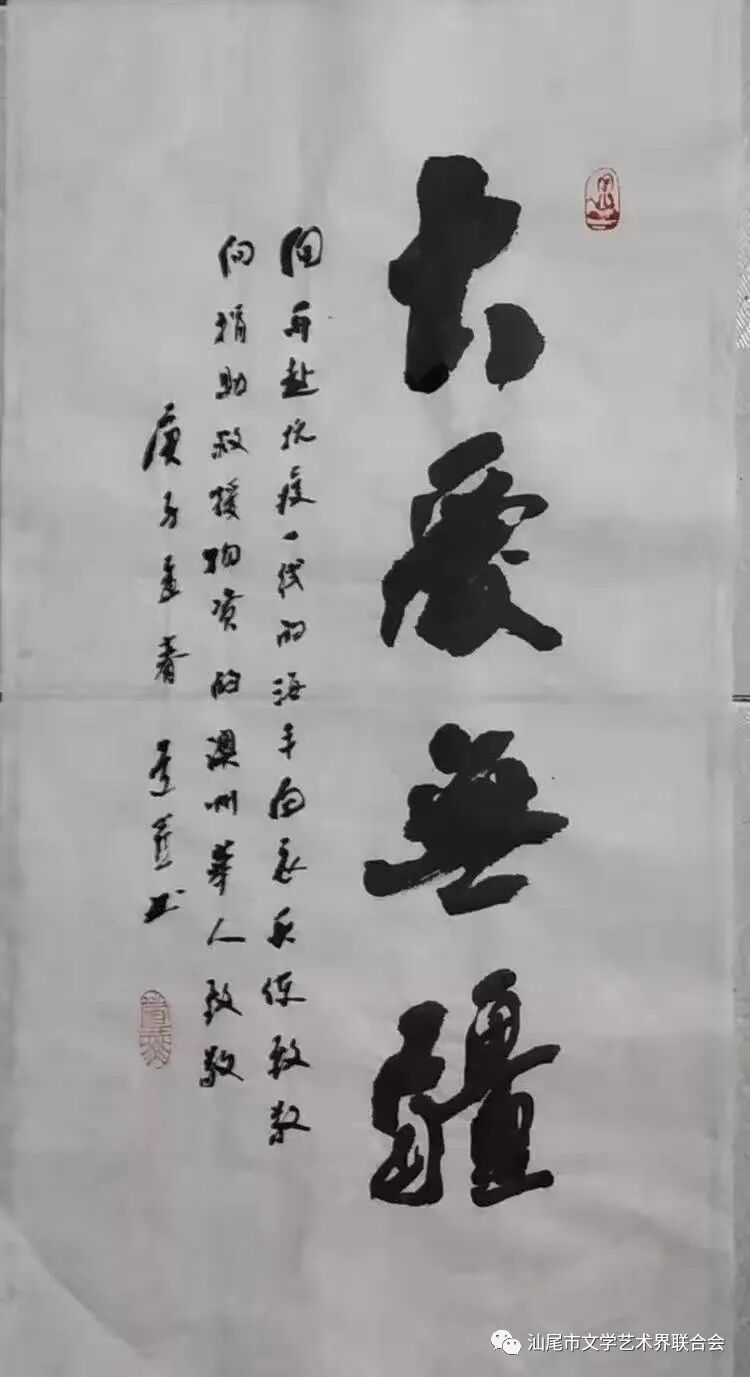 大爱無疆
向再赴抗疫一线的海丰白衣兵团致敬
向捐助救援物资的澳州華人致敬
庚子孟春
书
汕尾市文学艺术界联合会